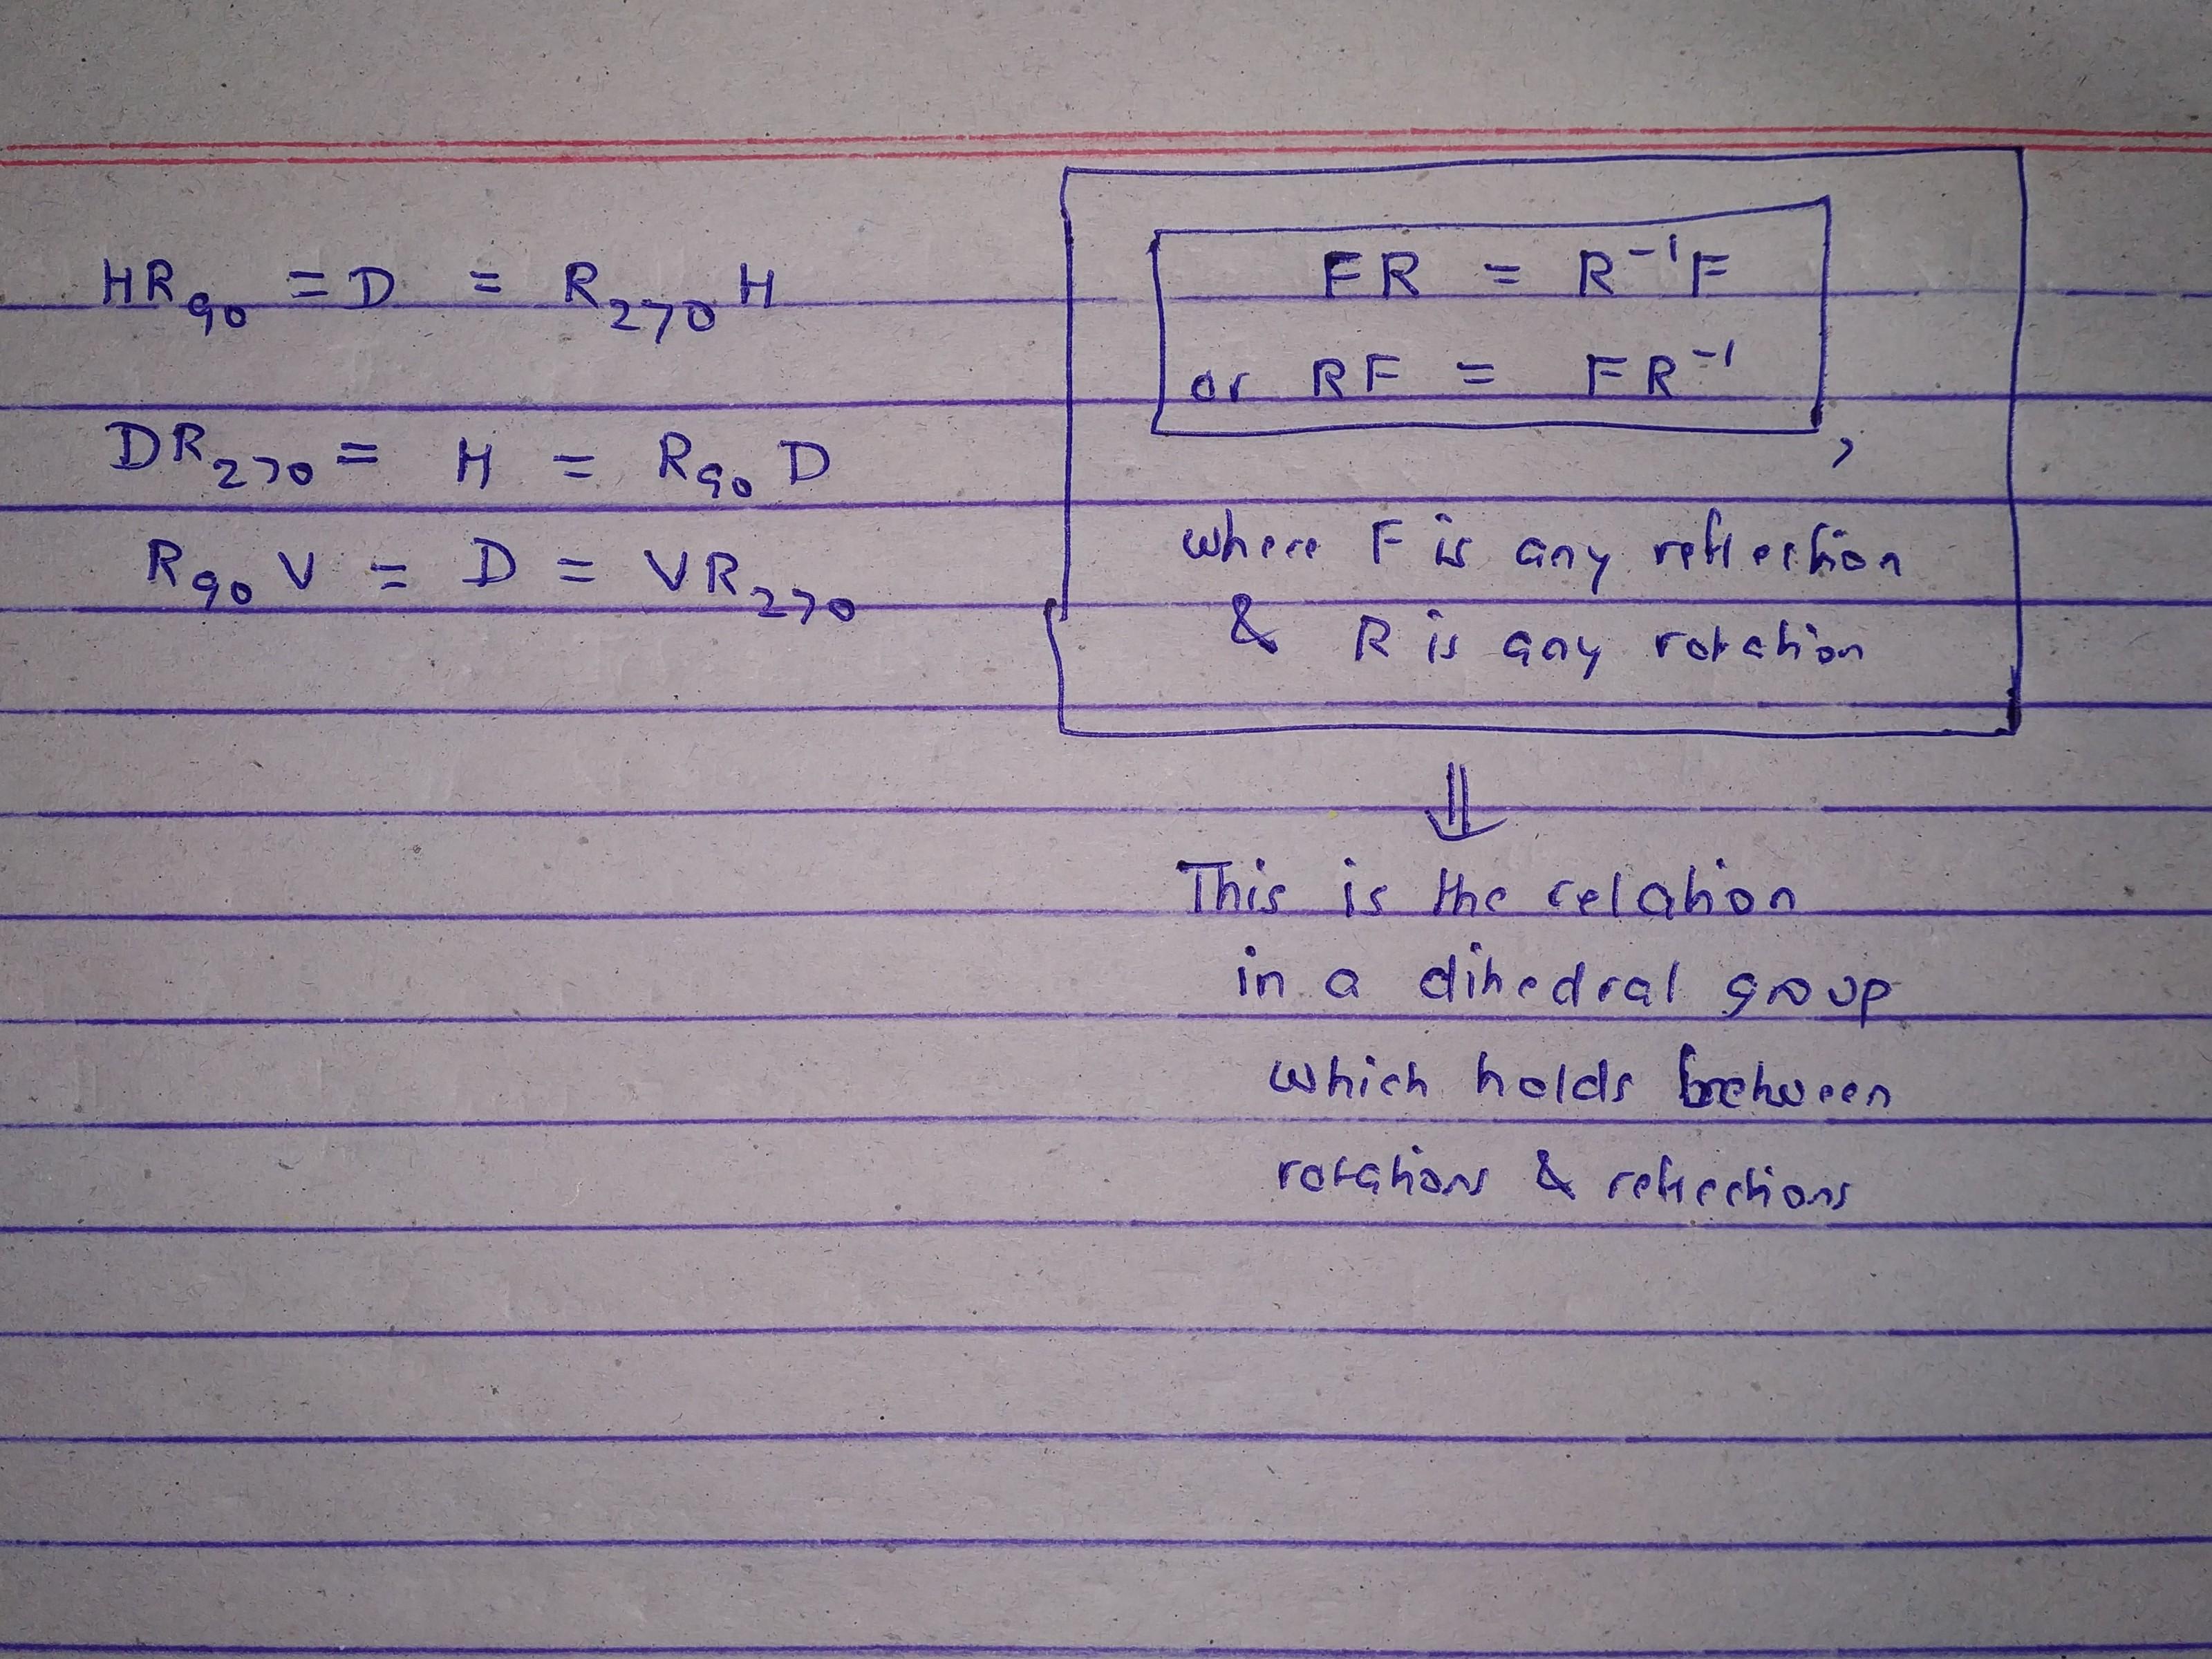 HR₉₀ = D = R₂₇₀ H
DR₂₇₀ = H = R₉₀ D
R₉₀ V = D = VR₂₇₀
FR = R⁻¹F
or RF = FR⁻¹ ,
where F is any reflection
& R is any rotation
⇓
This is the relation
in a dihedral group
which holds between
rotations & reflections